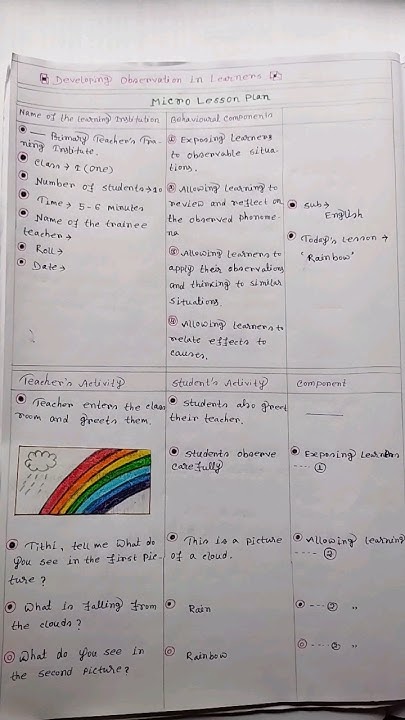 Developing Observation in Learners
Micro Lesson Plan
Name of the learning Institution
— Primary Teacher's Trai-
ning Institute.
Class → 1 (one)
Number of students → 10
Time → 5-6 minutes
Name of the trainee
teacher →
Roll →
Date →
Behavioural Components
① Exposing Learners
to observable situa-
tions.
② Allowing learning to
review and reflect on
the observed phenome-
na
③ Allowing learners to
apply their observations
and thinking to similar
situations.
④ Allowing learners to
relate effects to
causes.
Sub →
English
Today's Lesson →
'Rainbow'
Teacher's Activity
Student's Activity
Component
Teacher enters the class
room and greets them.
Students also greet
their teacher.
Students observe
carefully
Exposing Learners
---- ①
Tithi, tell me what do
you see in the first pic-
ture?
This is a picture
of a cloud.
Allowing learning
---- ②
What is falling from
the clouds?
Rain
---- ② "
What do you see in
the second picture?
Rainbow
---- ② "